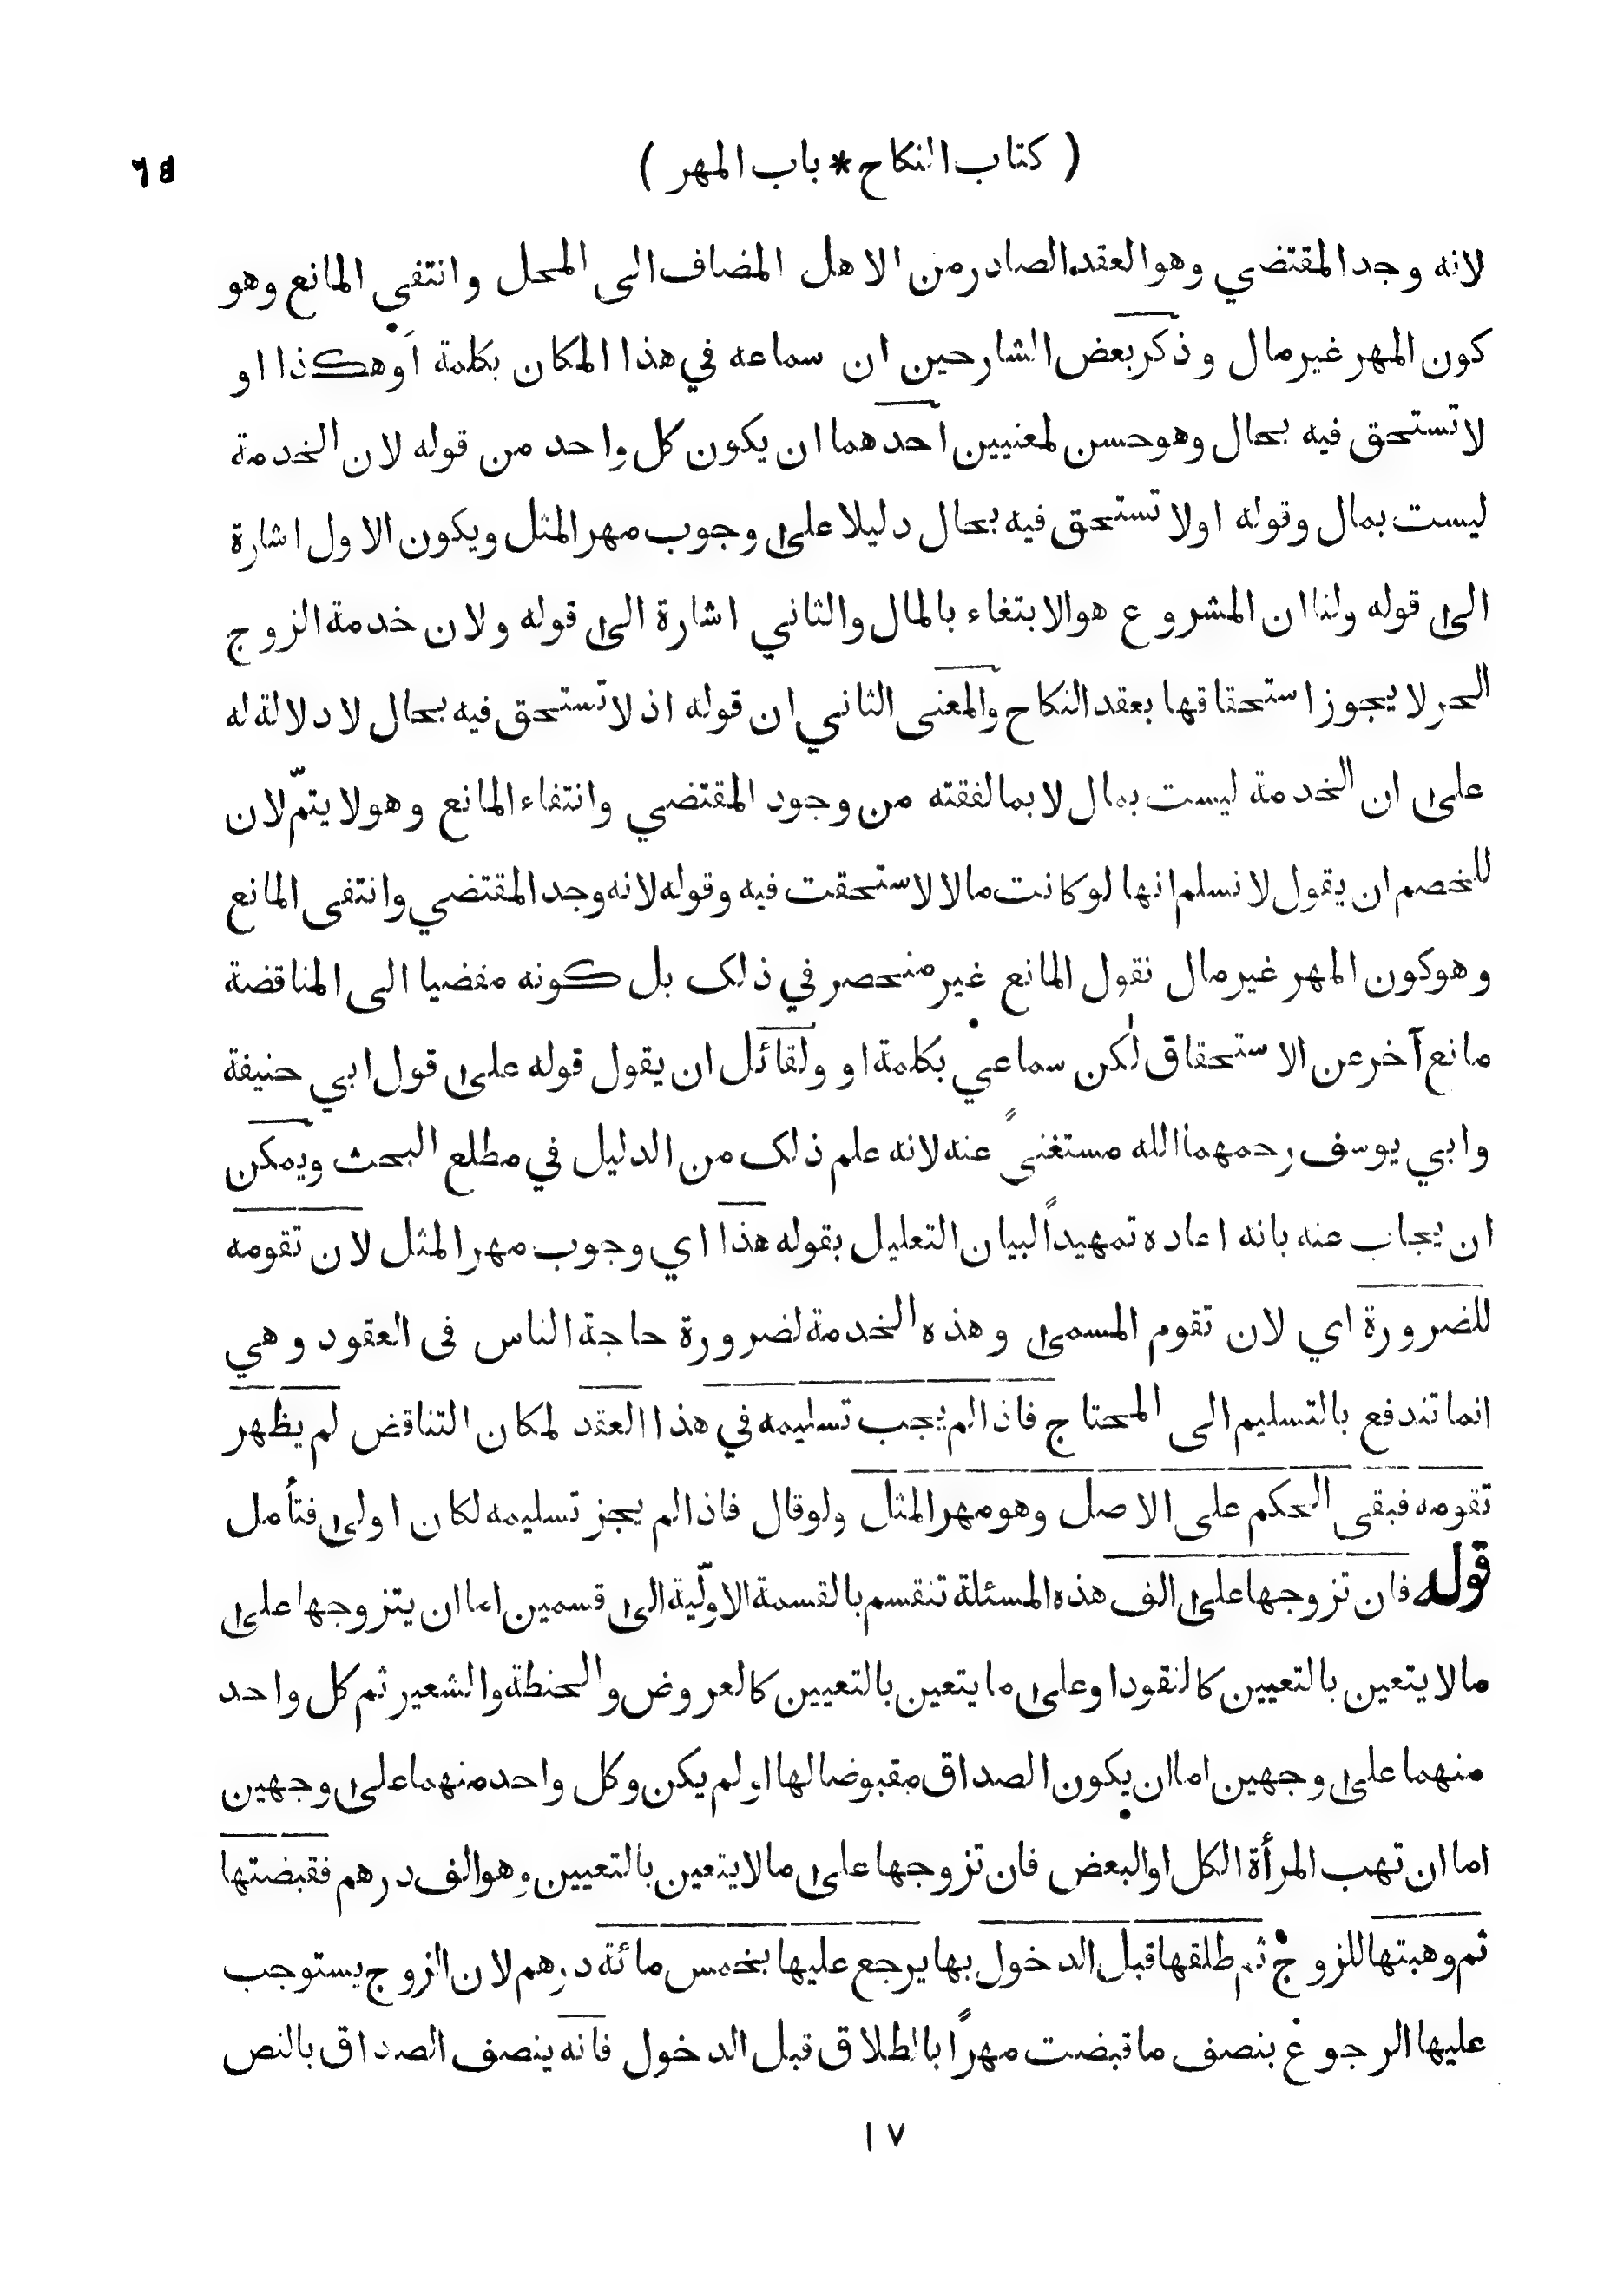 ( كتاب النكاح * باب المهر )
لانه وجد المقتضي وهو العقد الصادر من الاهل المضاف الى المحل وانتفى المانع وهو
كون المهر غير مال وذكر بعض الشارحين ان سماعه في هذا المكان بكلمة اَو هكذا او
لا تستحق فيه بحال وهو حسن لمعنيين احدهما ان يكون كل واحد من قوله لان الخدمة
ليست بمال وقوله اولا تستحق فيه بحال دليلا على وجوب مهر المثل ويكون الاول اشارة
الى قوله ولنا ان المشروع هو الابتغاء بالمال والثاني اشارة الى قوله ولان خدمة الزوج
الحر لا يجوز استحقاقها بعقد النكاح والمعنى الثاني ان قوله اذ لا تستحق فيه بحال لا دلالة له
على ان الخدمة ليست بمال لا بما لفقته من وجود المقتضي وانتفاء المانع وهو لا يتمّ لان
للخصم ان يقول لا نسلم انها لو كانت مالا لاستحقت فيه وقوله لانه وجد المقتضي وانتفى المانع
وهو كون المهر غير مال نقول المانع غير منحصر في ذلك بل كونه مفضيا الى المناقضة
مانع آخر عن الاستحقاق لكن سماعي بكلمة او ولقائل ان يقول قوله على قول ابي حنيفة
وابي يوسف رحمهما الله مستغنىً عنه لانه علم ذلك من الدليل في مطلع البحث ويمكن
ان يجاب عنه بانه اعاده تمهيداً لبيان التعليل بقوله هذا اي وجوب مهر المثل لان تقومه
للضرورة اي لان تقوم المسمى وهذه الخدمة لضرورة حاجة الناس فى العقود وهي
انما تندفع بالتسليم الى المحتاج فاذا لم يجب تسليمه في هذا العقد لمكان التناقض لم يظهر
تقومه فبقى الحكم على الاصل وهو مهر المثل ولو قال فاذا لم يجز تسليمه لكان اولى فتأمل
قوله فان تزوجها على الف هذه المسئلة تنقسم بالقسمة الاوّلية الى قسمين اما ان يتزوجها على
ما لا يتعين بالتعيين كالنقود او على ما يتعين بالتعيين كالعروض والحنطة والشعير ثم كل واحد
منهما على وجهين اما ان يكون الصداق مقبوضا لها او لم يكن وكل واحد منهما على وجهين
اما ان تهب المرأة الكل او البعض فان تزوجها على ما لا يتعين بالتعيين وهو الف درهم فقبضتها
ثم وهبتها للزوج ثم طلقها قبل الدخول بها يرجع عليها بخمس مائة درهم لان الزوج يستوجب
عليها الرجوع بنصف ما قبضت مهراً بالطلاق قبل الدخول فانه ينصف الصداق بالنص
١٧